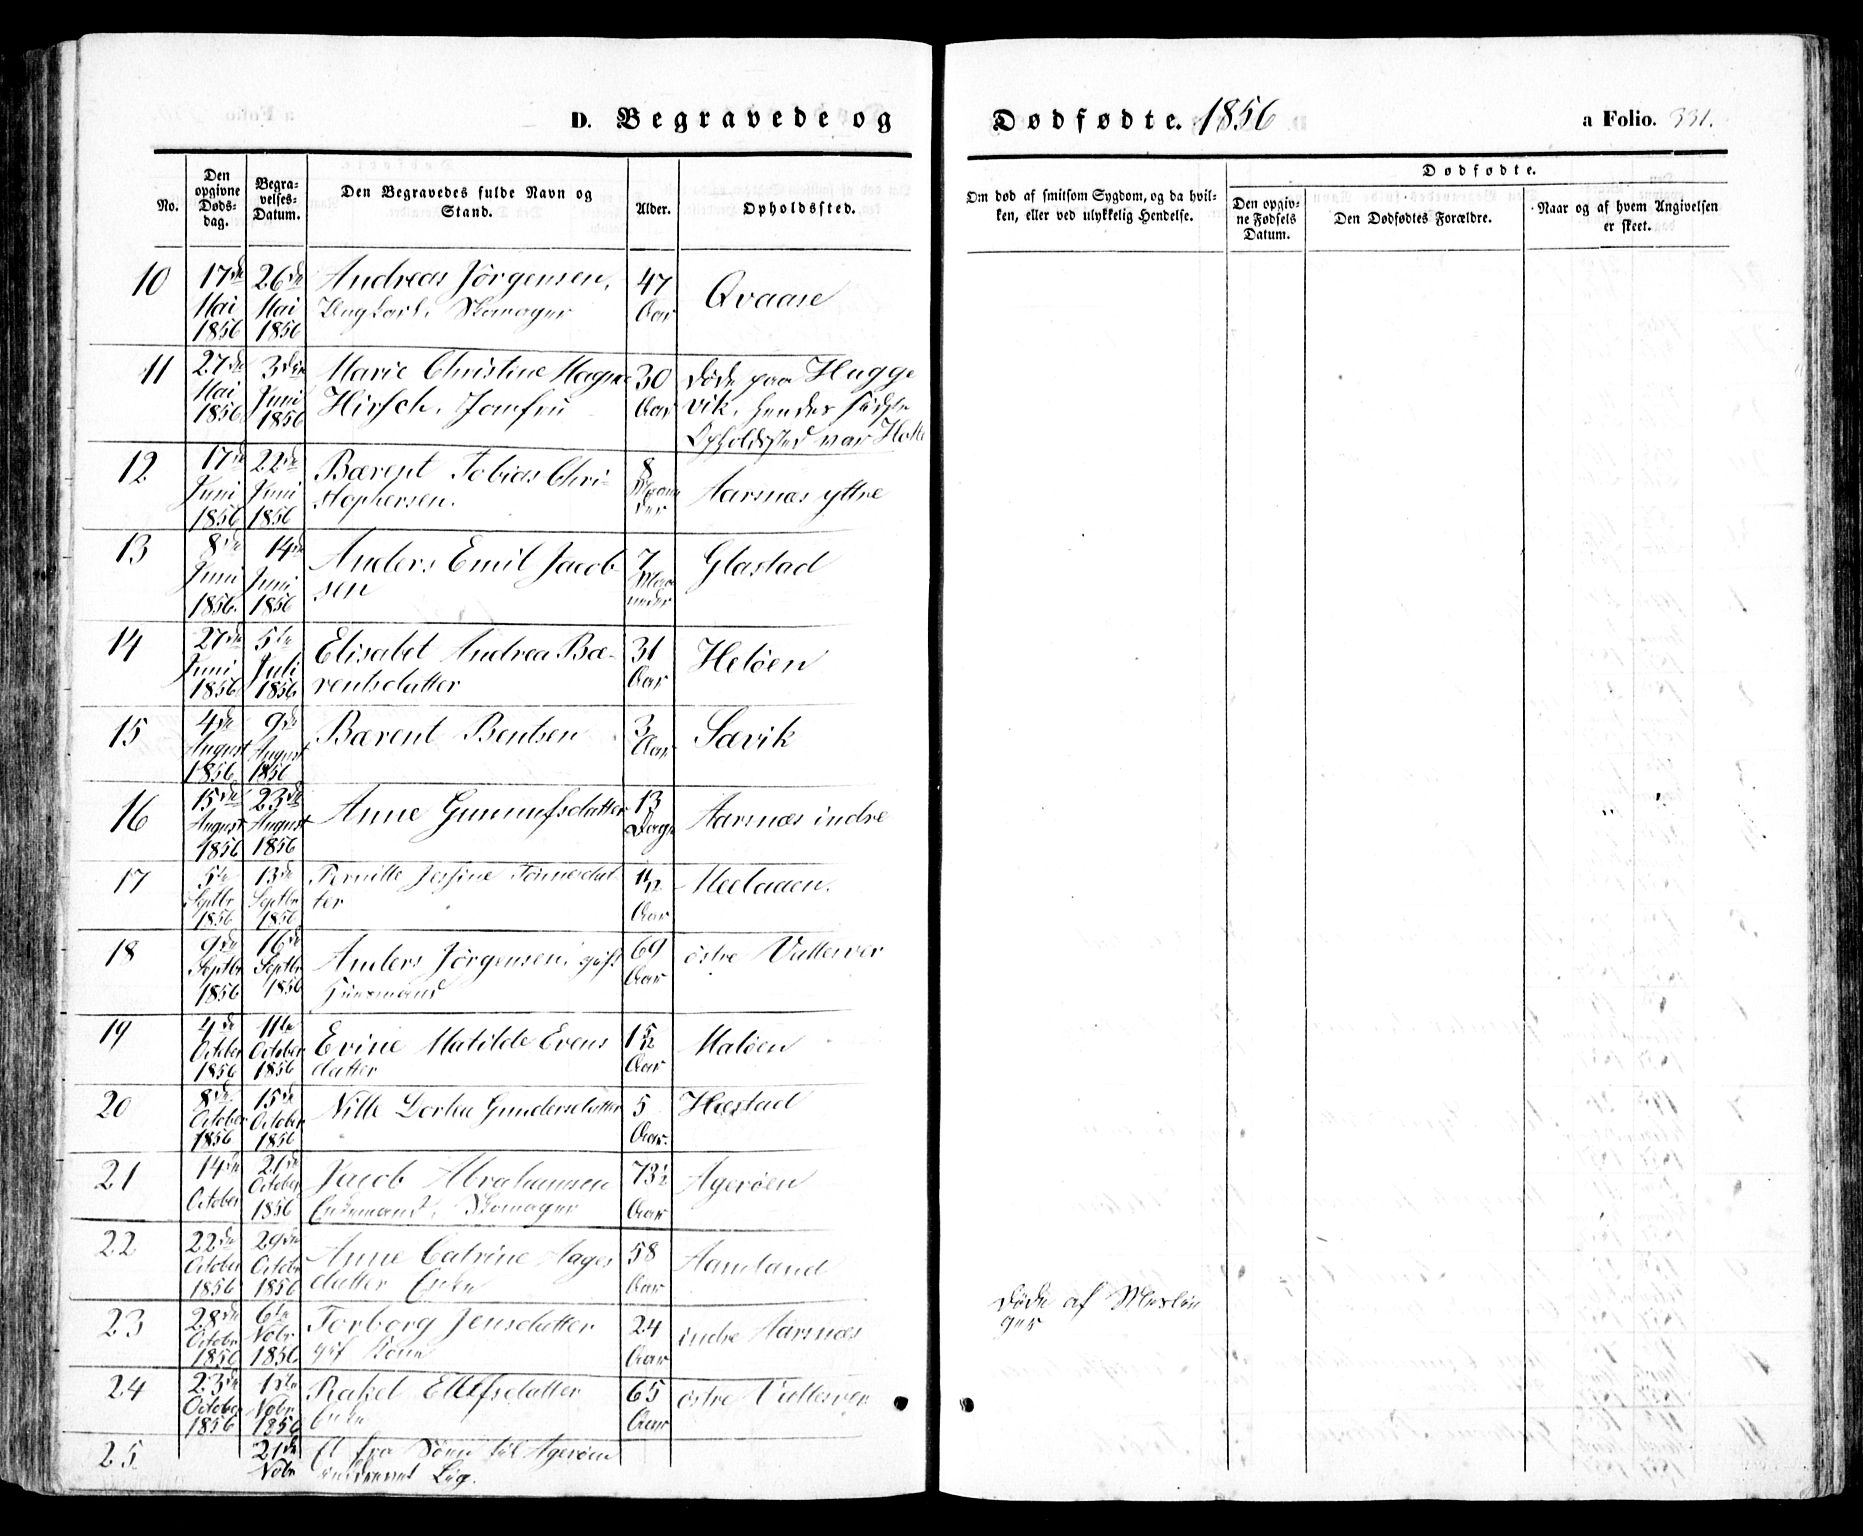 D. Begravede og Dødfødte. 1856 a Folio. 331.
No. Den opgivne Døds-dag. Begra-velses-Datum. Den Begravedes fulde Navn og Stand. Alder. Opholdssted. Om død af smitsom Sygdom, og da hvil-ken, eller ved ulykkelig Hendelse. Dødfødte. Den opgiv-ne Fødsels Datum. Den Dødfødtes Forældre. Naar og af hvem Angivelsen er skeet.
10 17de Mai 1856 26de Mai 1856 Andreas Jørgensen, Ungkarl, Skomager 47 Aar Qvaase
11 27de Mai 1856 3die Juni 1856 Marie Christine Magne Hirsch, Jomfru 30 Aar døde paa Hugge vik, hendes sidste Opholdssted var Holte
12 17de Juni 1856 22de Juni 1856 Bærent Tobias Chri-stophersen. 8 Maane der Aarsnæs yttre
13 8de Juni 1856. 14de Juni 1856 Anders Emil Jacob sen 7 Maa neder Glastad
14 27de Juni 1856 5te Juli 1856 Elisabet Andrea Bæ-rentsdatter 31 Aar Heløen
15 4de August 1856 9de August 1856 Bærent Bentsen 3 Aar Sævik
16 15de August 1856 23de August 1856 Anne Gunnufsdatter 13 Dage Aarsnæs indre
17 5te Septbr 1856 13de Septbr 1856 Pernille Josfine Tønnesdat-ter 11/12 Aar
18 9de Septbr 1856 16de Septbr 1856 Anders Jørgensen, gift Huusmand 69 Aar østre Vallesvær
19 4de October 1856 11te October 1856 Evine Matilde Evens datter 1 5/12 Aar Maløen
20 8de October 1856 15de October 1856 Nille Dorthea Gundersdatter 5 Aar. Hæstad
21 14de October 21de October 1856 Jacob Abrahamsen Enkemand, Skomager 73½ Aar Agerøen
22 22de October 1856 29de Octobr 1856 Anne Catrine Aages datter Enke 58 Aar Aamland
23 28de Octobr 1856 6te Nobr 1856 Torborg Jensdatter gift Kone 24 Aar indre Aarsnæs døde af Mæslin ger
24 23de October 1856 1ste Nobr 1856 Rakel Ellefsdatter Enke 65 Aar østre Vallesvær
25 21de Nobr Et fra Søen til Agerøen inddrevet Liig.